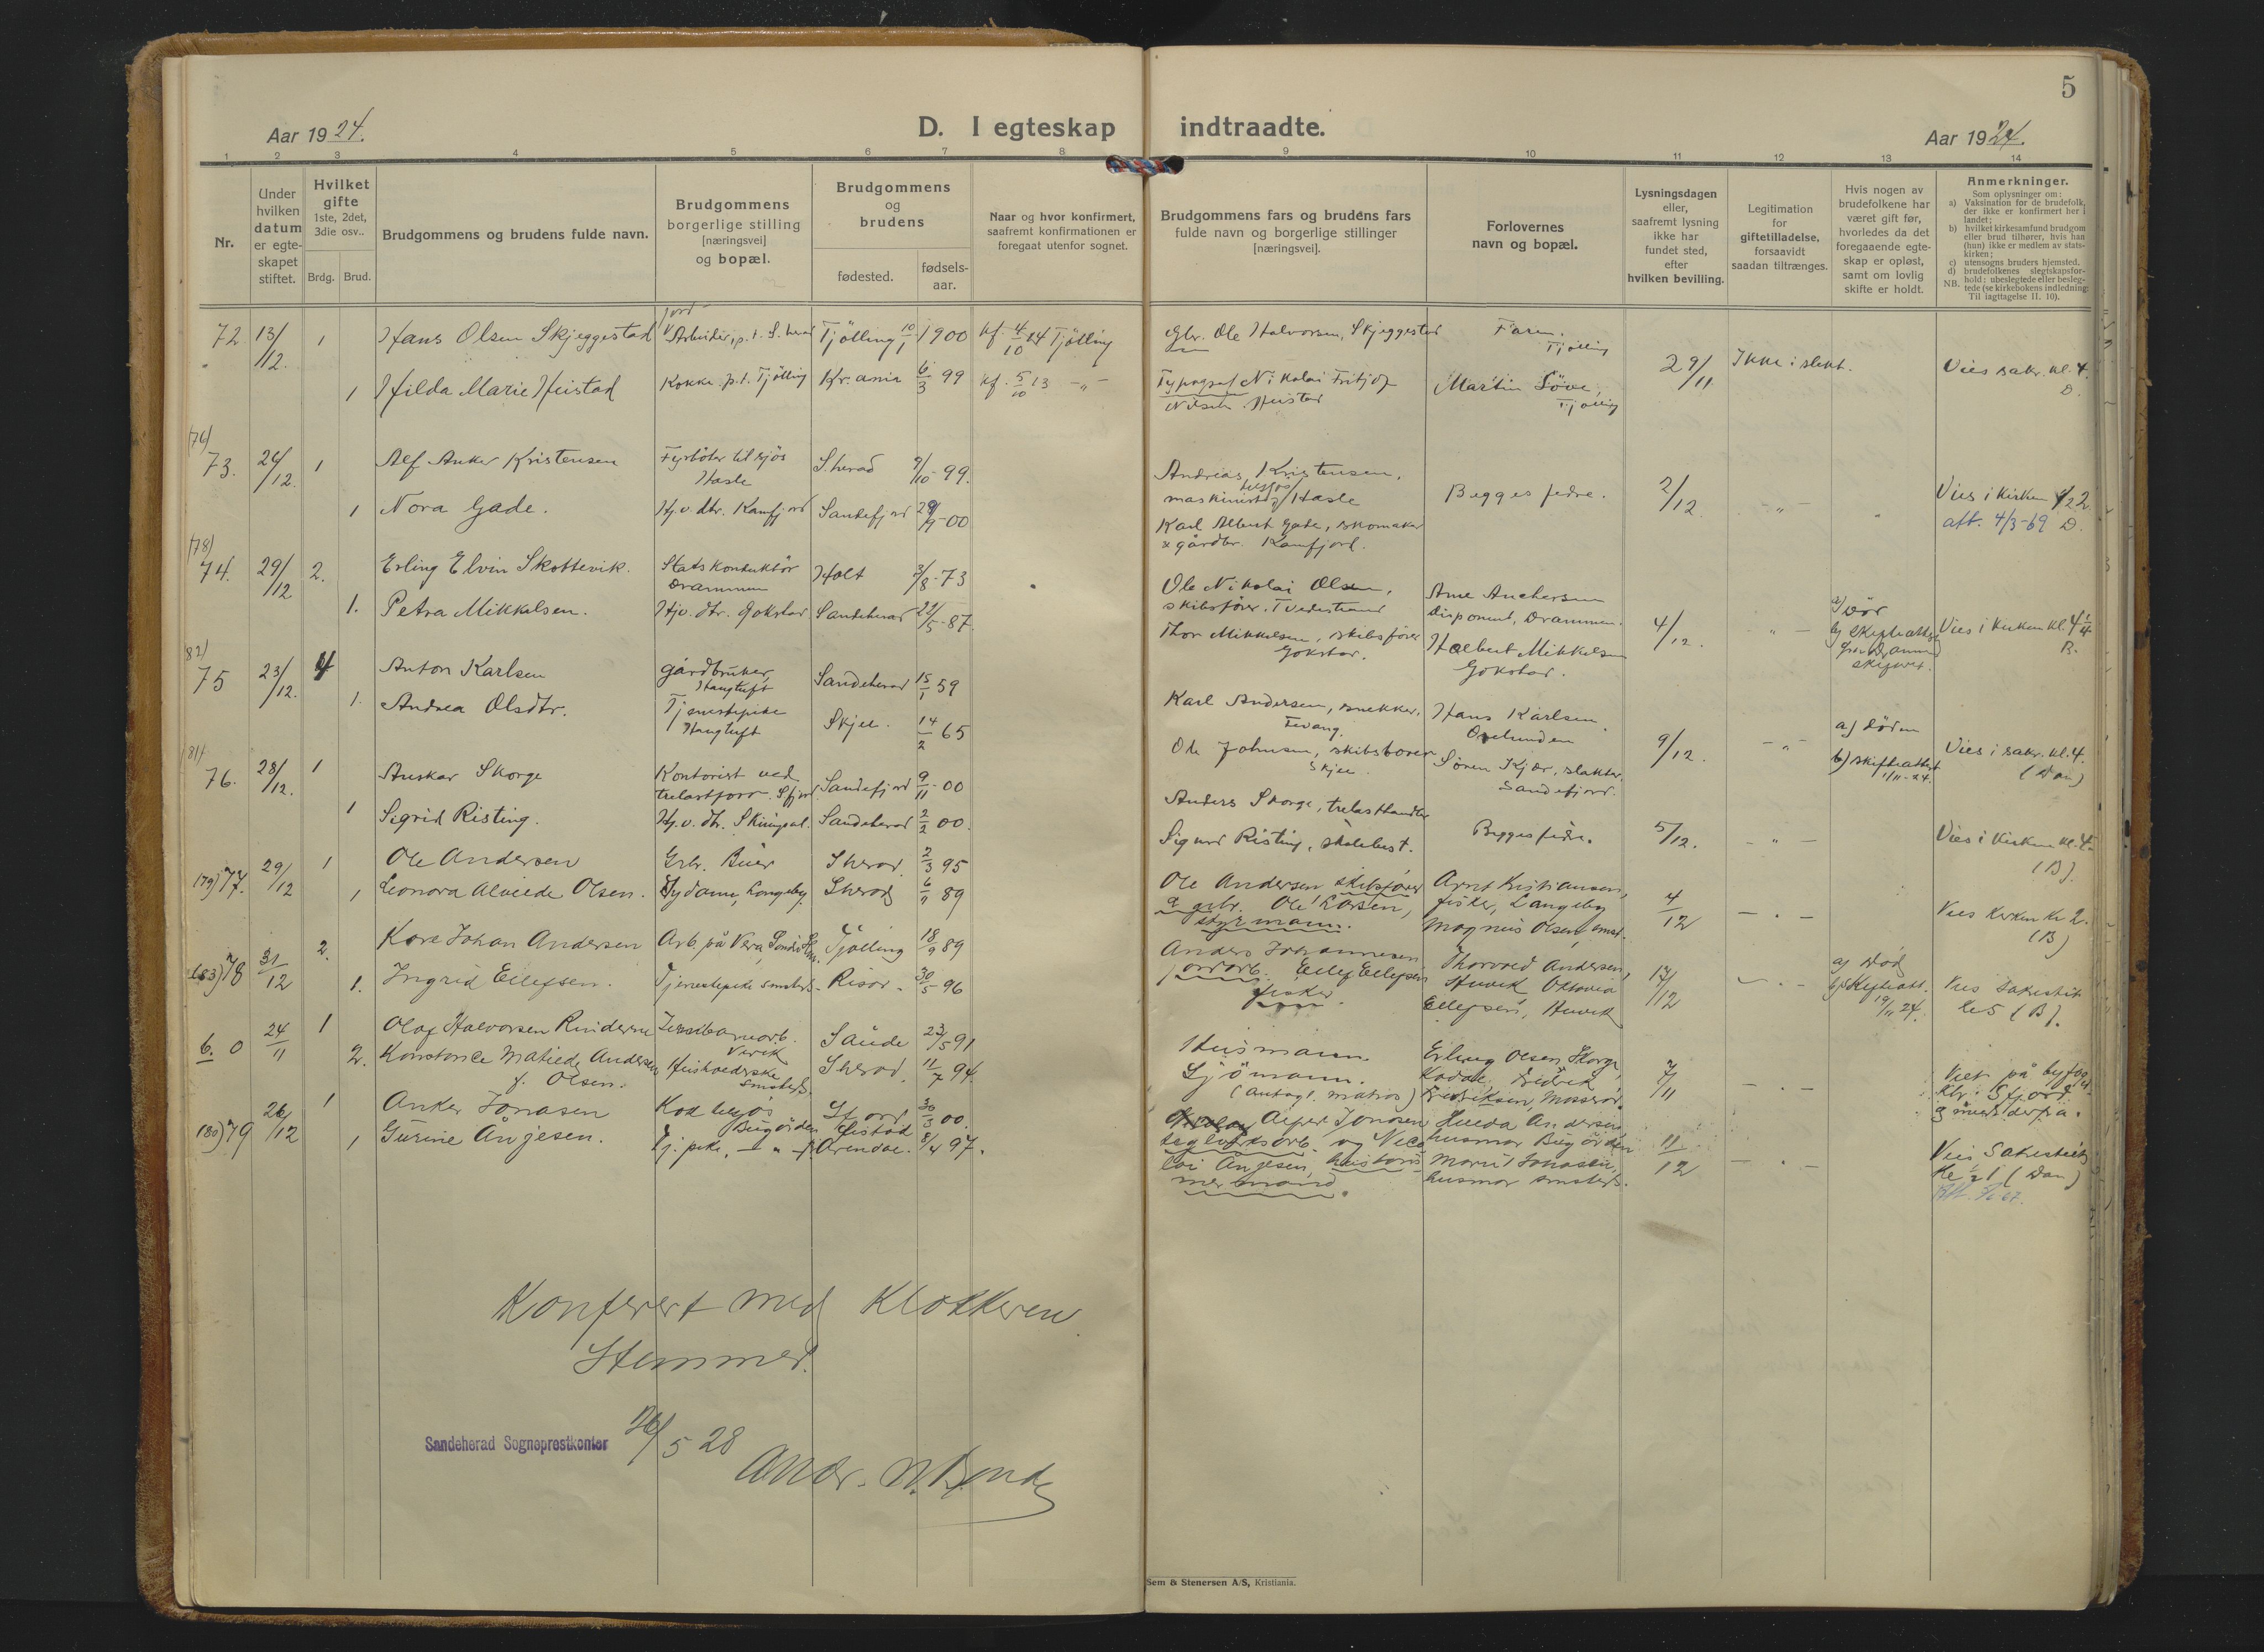 5
Aar 1924.
D. I egteskap indtraadte.
Aar 1924.
1 2 3 4 5 6 7 8 9 10 11 12 13 14
Nr.
Under hvilken datum er egte- skapet stiftet.
Hvilket gifte 1ste, 2det, 3die osv..
Brdg. Brud.
Brudgommens og brudens fulde navn.
Brudgommens borgerlige stilling [næringsvei] og bopæl.
Brudgommens og brudens
fødested.
fødsels- aar.
Naar og hvor konfirmert, saafremt konfirmationen er foregaat utenfor sognet.
Brudgommens fars og brudens fars fulde navn og borgerlige stillinger [næringsvei].
Forlovernes navn og bopæl.
Lysningsdagen eller, saafremt lysning ikke har fundet sted, efter hvilken bevilling.
Legitimation for giftetilladelse, forsaavidt saadan tiltrænges.
Hvis nogen av brudefolkene har været gift før, hvorledes da det foregaaende egte- skap er opløst, samt om lovlig skifte er holdt.
Anmerkninger.
Som oplysninger om:
a) Vaksination for de brudefolk, der ikke er konfirmert her i landet;
b) hvilket kirkesamfund brudgom eller brud tilhører, hvis han (hun) ikke er medlem av stats- kirken;
c) utensogns bruders hjemsted.
d) brudefolkenes slegtskapsfor- hold: ubeslegtede eller besleg- tede (se kirkebokens indledning:
NB. Til iagttagelse II. 10).
72 13/12. 1 Hans Olsen Skjeggestad jord Arbeider, p.t. S.herad Tjølling 10/1 1900 kf. 4/10 14 Tjølling
Gbr. Ole Halvorsen, Skjeggestad Faren. Tjølling
1 Hilda Marie Heistad Kokke. p.t. Tjølling Kr.ania 6/3 99 kf. 5/10 13 -"-
Typograf Nikolai Fritjof Nilsen Heistad Martin Löve, Tjølling 29/11 Ikke i slekt. Viet sakr. kl. 4. D.
(76) 73. 24/12. 1 Alf Anker Kristensen Fyrböter til sjös Hasle S.herad 9/10-99.
Andreas Kristensen, maskinist tilsjös Hasle Begges fedre. 2/12 -"- Vies i kirken
1 Nora Gade. Hj.v. dtr. Kamfjord Sandefjord 29/9-00
Karl Albert Gade, skomaker & gårdbr. Kamfjord. att. 4/3-69 D.
(78) 74. 29/12 2. Erling Elvin Skottevik. Stadskonduktör Drammen Holt 3/8-73
Ole Nikolai Olsen, skibsförer. Tvedestrand Arne Anchersen Disponent, Drammen.
1. Petra Mikkelsen. Hjv. dtr. Gokstad Sandeherad 22/5-87.
Thor Mikkelsen, skibsförer Gokstad. Halbert Mikkelsen Gokstad. 4/12. -"- a) död b) skifteattest fra Drammen skifteret. Vies i kirken kl. 4 1/4 B.
82) 75 23/12. 4 Anton Karlsen gårdbruker, Haugtuft Sandeherad 15/1 59
Karl Andersen, snekker, Fevang. Hans Karlsen
1. Andrea Olsdtr. Tjenestepike Haugtuft Skjee. 14/2 65
Ole Johnsen, skibstömmer Skjee. Sören Kjær, slakter, Sandefjord. 9/12. -"- a) döden b) skifteattest 1/11-24. Vies i sakr. kl. 4. (Dan)
(81) 76. 28/12. 1 Anskar Skorge Kontorist ved trelastforr. Sfjord Sandefjord 9/11-00
Anders Skorge, trelasthandler
1 Sigrid Risting. Hj.v. dtr. Skiringssal. Sandeherad 2/2 00.
Sigurd Risting, skolebest. Begges fedre. 5/12. -"- Vies i kirken kl. 4. (B).
(79) 77. 29/12 1 Ole Andersen Grbr. Buer S.herad. 2/3 95
Ole Andersen skibsförer & grbr. Arnt Kristiansen, fisker, Langeby
1 Leonora Alvilde Olsen. Sydame, Langeby. S.herad 6/11 89
Ole Larsen, styrmann. Magnus Olsen, smst. 4/12 -"- Vies kirken kl 2. (B)
(83) 78 31/12 2. Kare Johan Andersen Arb. på Vera, Tjølling 18/9 89
Anders Johannesen jordarb. Thorvald Andersen, Huvik
1. Ingrid Ellefsen. Tjenestepike smsteds. Risör. 30/5-96
Ellef Ellefsen fisker. Oktavia Ellefsen, Huvik 13/12 -"- a) död b) Skifteatt. 19/11 24. Vies sakristit kl 5 (B).
6. 0 24/11 1 Olaf Halvorsen Rinderne Jernbanearb. Virik Sande 23/5 91
Husmann. Erling Olsen Skorge, Kodal.
2. Konstance Matilde Andersen f. Olsen. Husholderske smsteds. S.herad. 11/7 94.
Sjömann. (antagl. matros) Fredrik Fredriksen, Mosserød. 7/11 -"- Viet på byfog. ktr. i Sfjord.
(80) 79 26/12 1 Anker Jonasen Kok tilsjös Bugården 30/3 00.
Alfred Jonasen teglverksarb. Hulda Andersen husmor Bugården
1 Gurine Ånjesen. Tj. pike, -"- Arendal. 8/4 97.
og Nicolai Ånjesen, Marie Jonasen, husmor smsteds. 11/12 -"- Vies Sakristit kl 2 1 (Dan)
Konferert med Klokkeren
Stemmer.
Sandeherad Sogneprestkontor 26/5 28
Andr. N. Bonde
Sem & Stenersen A/S, Kristiania.